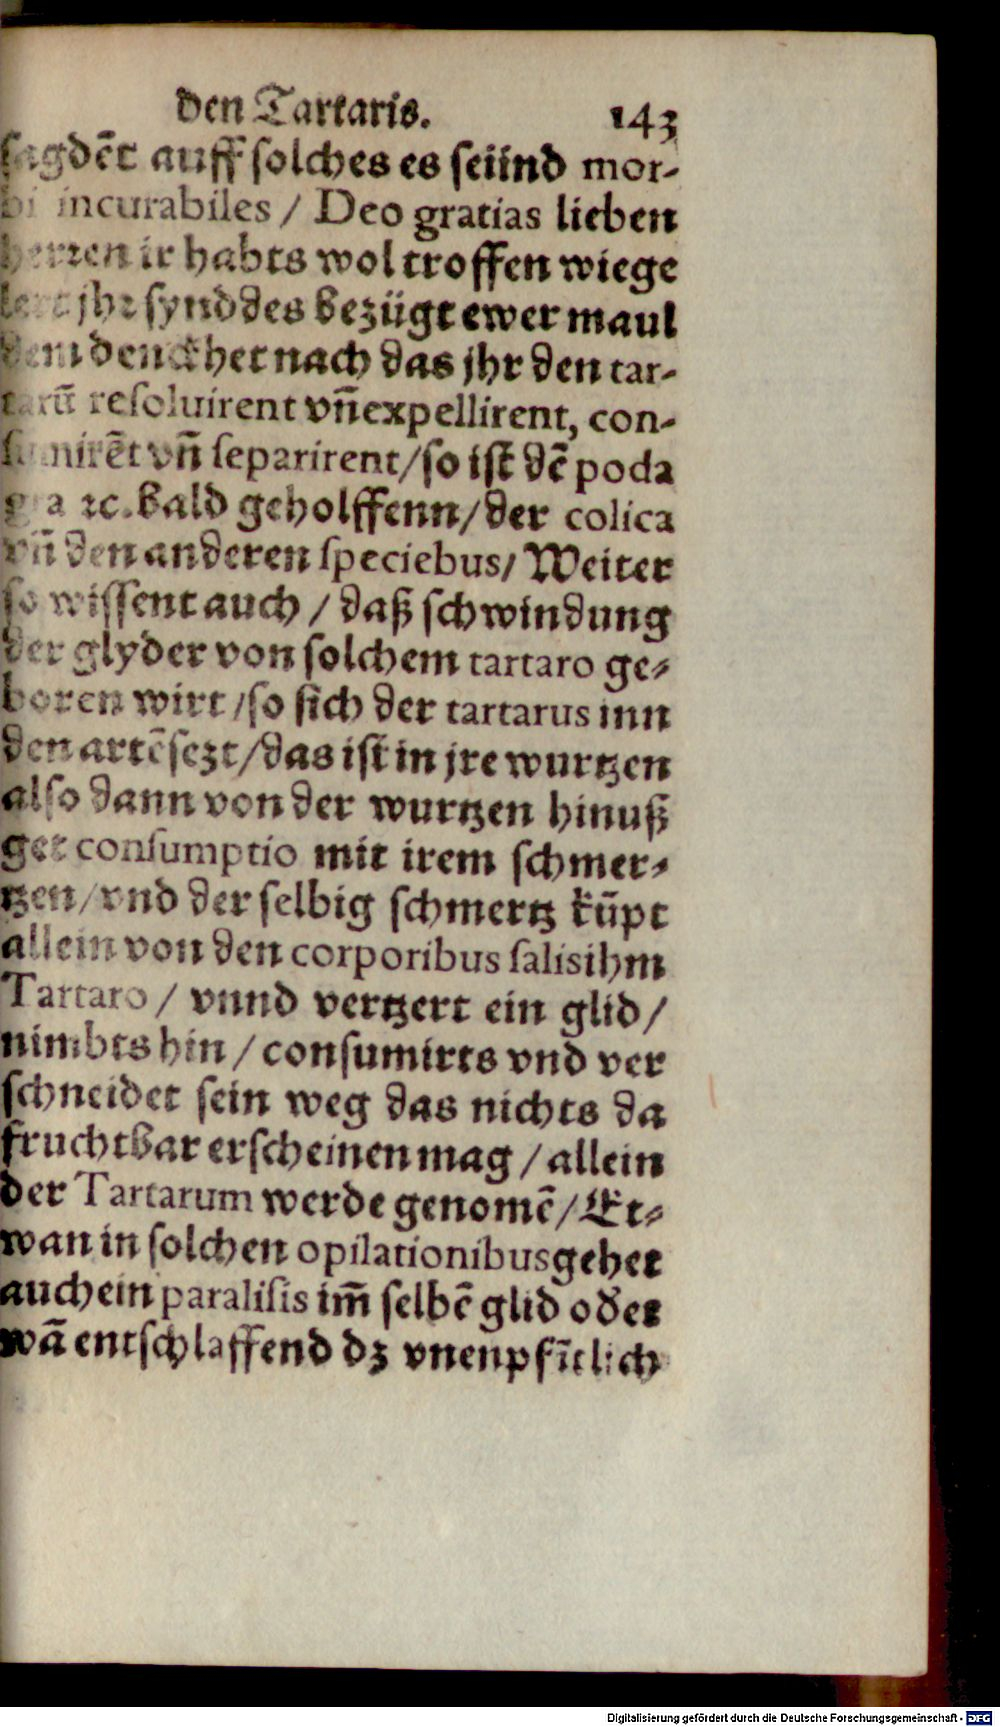 den Tartaris. 143
sagdēt auff solches es seiind mor-
bi incurabiles / Deo gratias lieben
herren ir habts wol troffen wie ge
lert jhr synd des bezügt ewer maul
dem denckhet nach das jhr den tar-
tarū resoluirent vn̄ expellirent, con-
sumirēt vn̄ separirent/so ist dē poda
gra ꝛc. bald geholffenn/der colica
vn̄ den anderen speciebus/ Weiter
so wissent auch / daß schwindung
der glyder von solchem tartaro ge-
boren wirt /so sich der tartarus inn
den artē sezt/das ist in jre wurtzen
also dann von der wurtzen hinuß
get consumptio mit irem schmer-
tzen/vnd der selbig schmertz kūpt
allein von den corporibus salis ihm
Tartaro / vnnd vertzert ein glid/
nimbts hin / consumirts vnd ver
schneidet sein weg das nichts da
fruchtbar erscheinen mag / allein
der Tartarum werde genomē/Et-
wan in solchen opilationibus gehet
auch ein paralisis im̄ selbē glid oder
wā entschlaffend dz vnenpfītlich
Digitalisierung gefördert durch die Deutsche Forschungsgemeinschaft - DFG